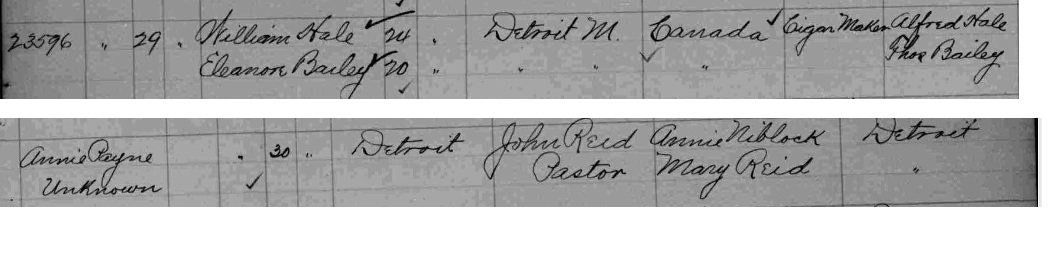 23596 " 29 " William Hale 24 " Detroit M. Canada Cigar Maker Alfred Hale
Eleanore Bailey 20 " " " " Thos Bailey
Annie Payne " 30 " Detroit John Reid Annie Niblock Detroit
Unknown Pastor Mary Reid "